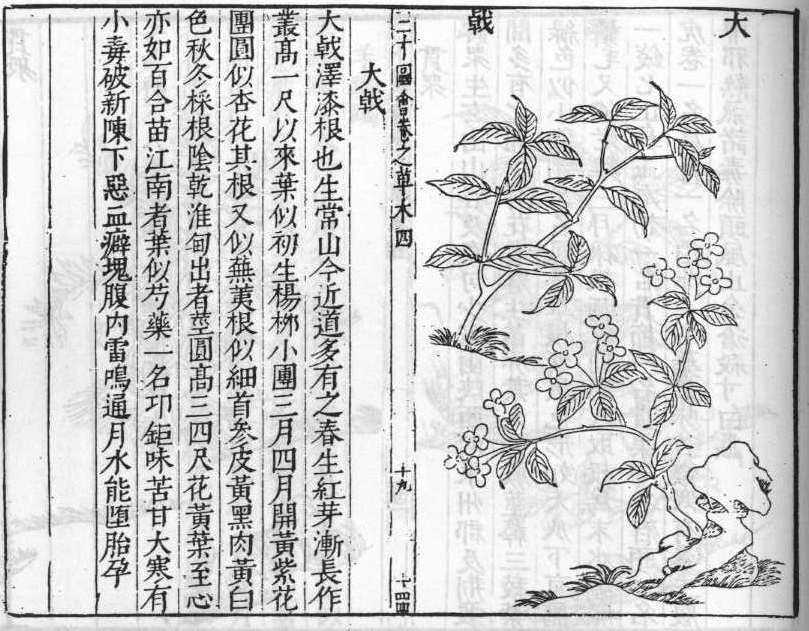 大
戟
圖會卷之草木四
十九
大戟
大戟澤漆根也生常山今近道多有之春生紅芽漸長作
叢高一尺以來葉似初生楊柳小團三月四月開黃紫花
團圓似杏花其根又似蕪荑根似細苦參皮黃黑肉黃白
色秋冬採根陰乾淮甸出者莖圓高三四尺花黃葉至心
亦如百合苗江南者葉似芍藥一名卭鉅味苦甘大寒有
小毒破新陳下惡血癖塊腹內雷鳴通月水能墮胎孕